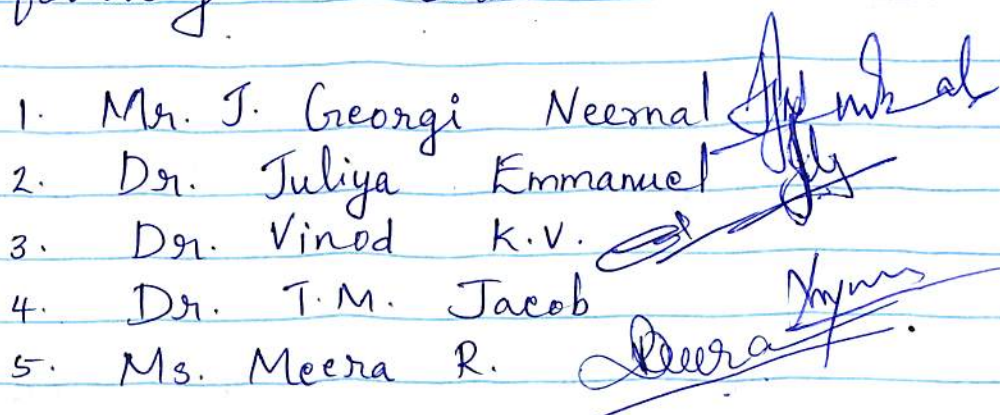 1. Mr. J. Georgi Neernal
2. Dr. Juliya Emmanuel
3. Dr. Vinod K.V.
4. Dr. T.M. Jacob
5. Ms. Meera R. Meera